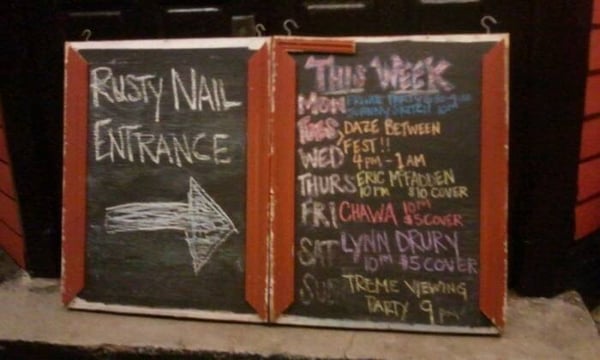 Rusty Nail
Entrance
This Week
Mon Private Party
Tues Daze Between
Fest!!
Wed 4pm - 1am
Thurs Eric McFadden
10pm $10 cover
Fri Chawa 10pm
$5 cover
Sat Lynn Drury
10pm $5 cover
Sun Treme Viewing
Party 9pm